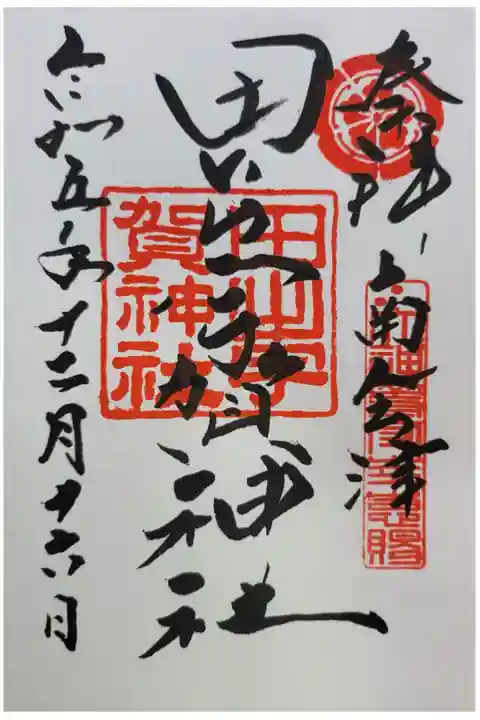 奉拝
南会津
田出宇賀神社
田出宇
賀神社
令和五年十二月十六日